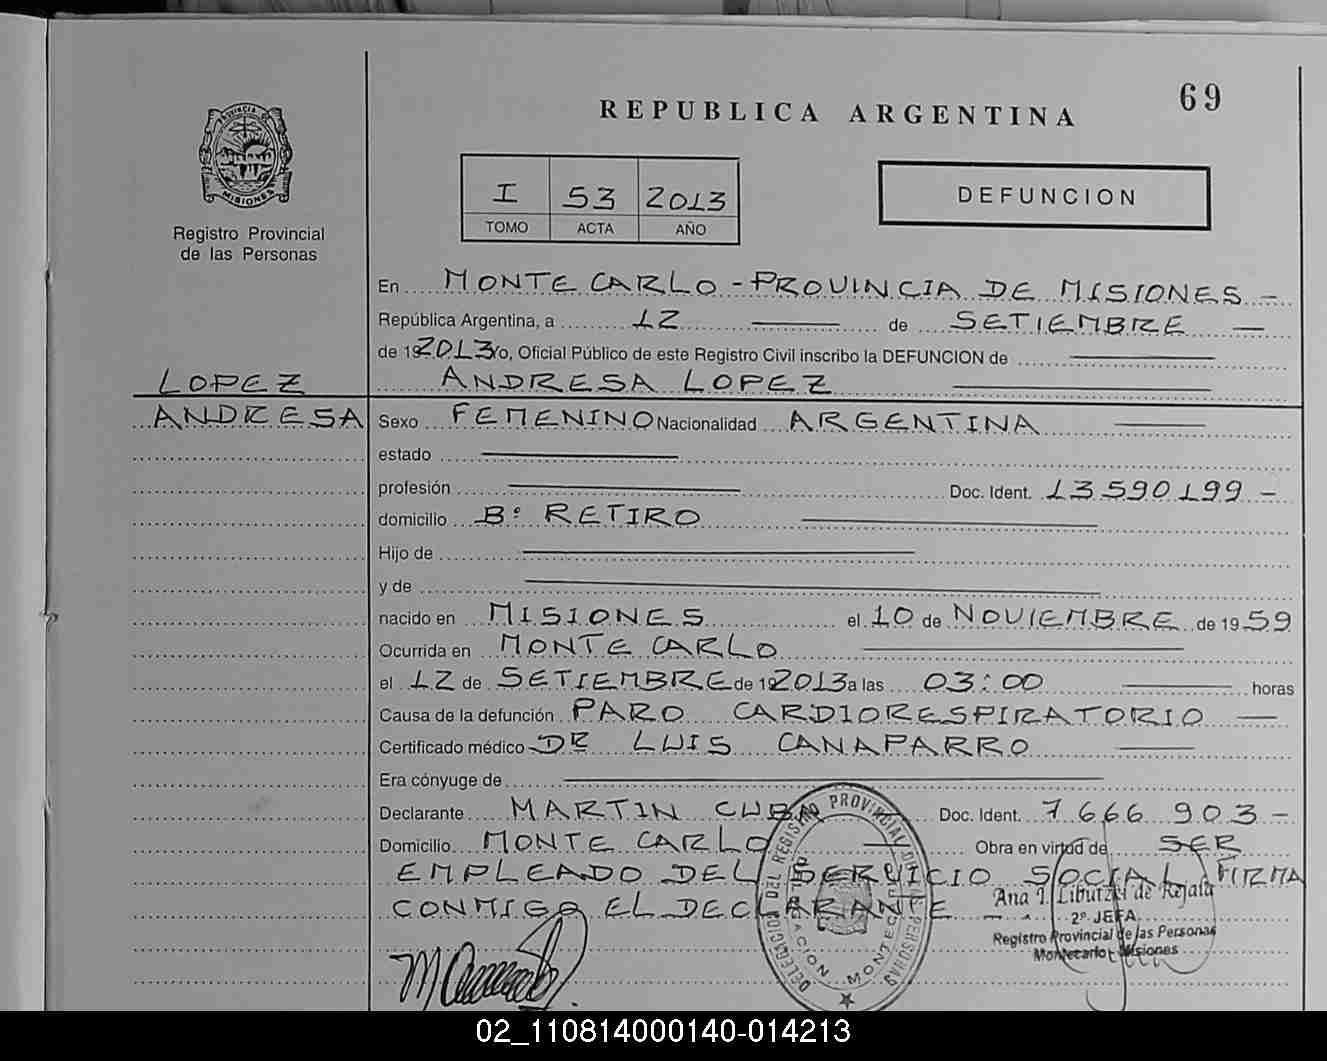 69
REPUBLICA ARGENTINA
PROVINCIA DE
MISIONES
Registro Provincial
de las Personas
I 53 2013
TOMO ACTA AÑO
DEFUNCION
En MONTE CARLO - PROVINCIA DE MISIONES -
República Argentina, a 12 de SETIEMBRE
de 192013 Yo, Oficial Público de este Registro Civil inscribo la DEFUNCION de
LOPEZ
ANDRESA
ANDRESA LOPEZ
Sexo FEMENINO Nacionalidad ARGENTINA
estado
profesión Doc. Ident. 13590199 -
domicilio B° RETIRO
Hijo de
y de
nacido en MISIONES el 10 de NOVIEMBRE de 1959
Ocurrida en MONTE CARLO
el 12 de SETIEMBRE de 192013 a las 03:00 horas
Causa de la defunción PARO CARDIORESPIRATORIO
Certificado médico DR LUIS CANAPARRO
Era cónyuge de
Declarante MARTIN CUBA Doc. Ident. 7 666 903 -
Domicilio MONTE CARLO Obra en virtud de SER
EMPLEADO DEL SERVICIO SOCIAL FIRMA
CONMIGO EL DECLARANTE
DELEGACION DEL REGISTRO PROVINCIAL DE LAS PERSONAS
Ana I. Libutzki de Rejala
2º. JEFA
Registro Provincial de las Personas
Montecarlo - Misiones
02_110814000140-014213